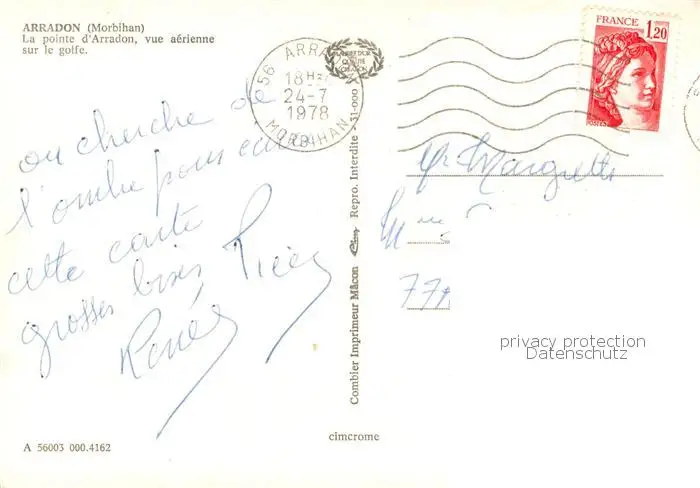 ARRADON (Morbihan)
La pointe d'Arradon, vue aérienne
sur le golfe.
56 ARRADON
18H
24-7
1978
MORBIHAN
FRANCE 1,20
POSTES
on cherche de
l'ombre pour
cette carte
grosses bises
Renée
Combier Imprimeur Mâcon Cim Repro. Interdite - 31-000
Mme
77
privacy protection
Datenschutz
A 56003 000.4162
cimcrome